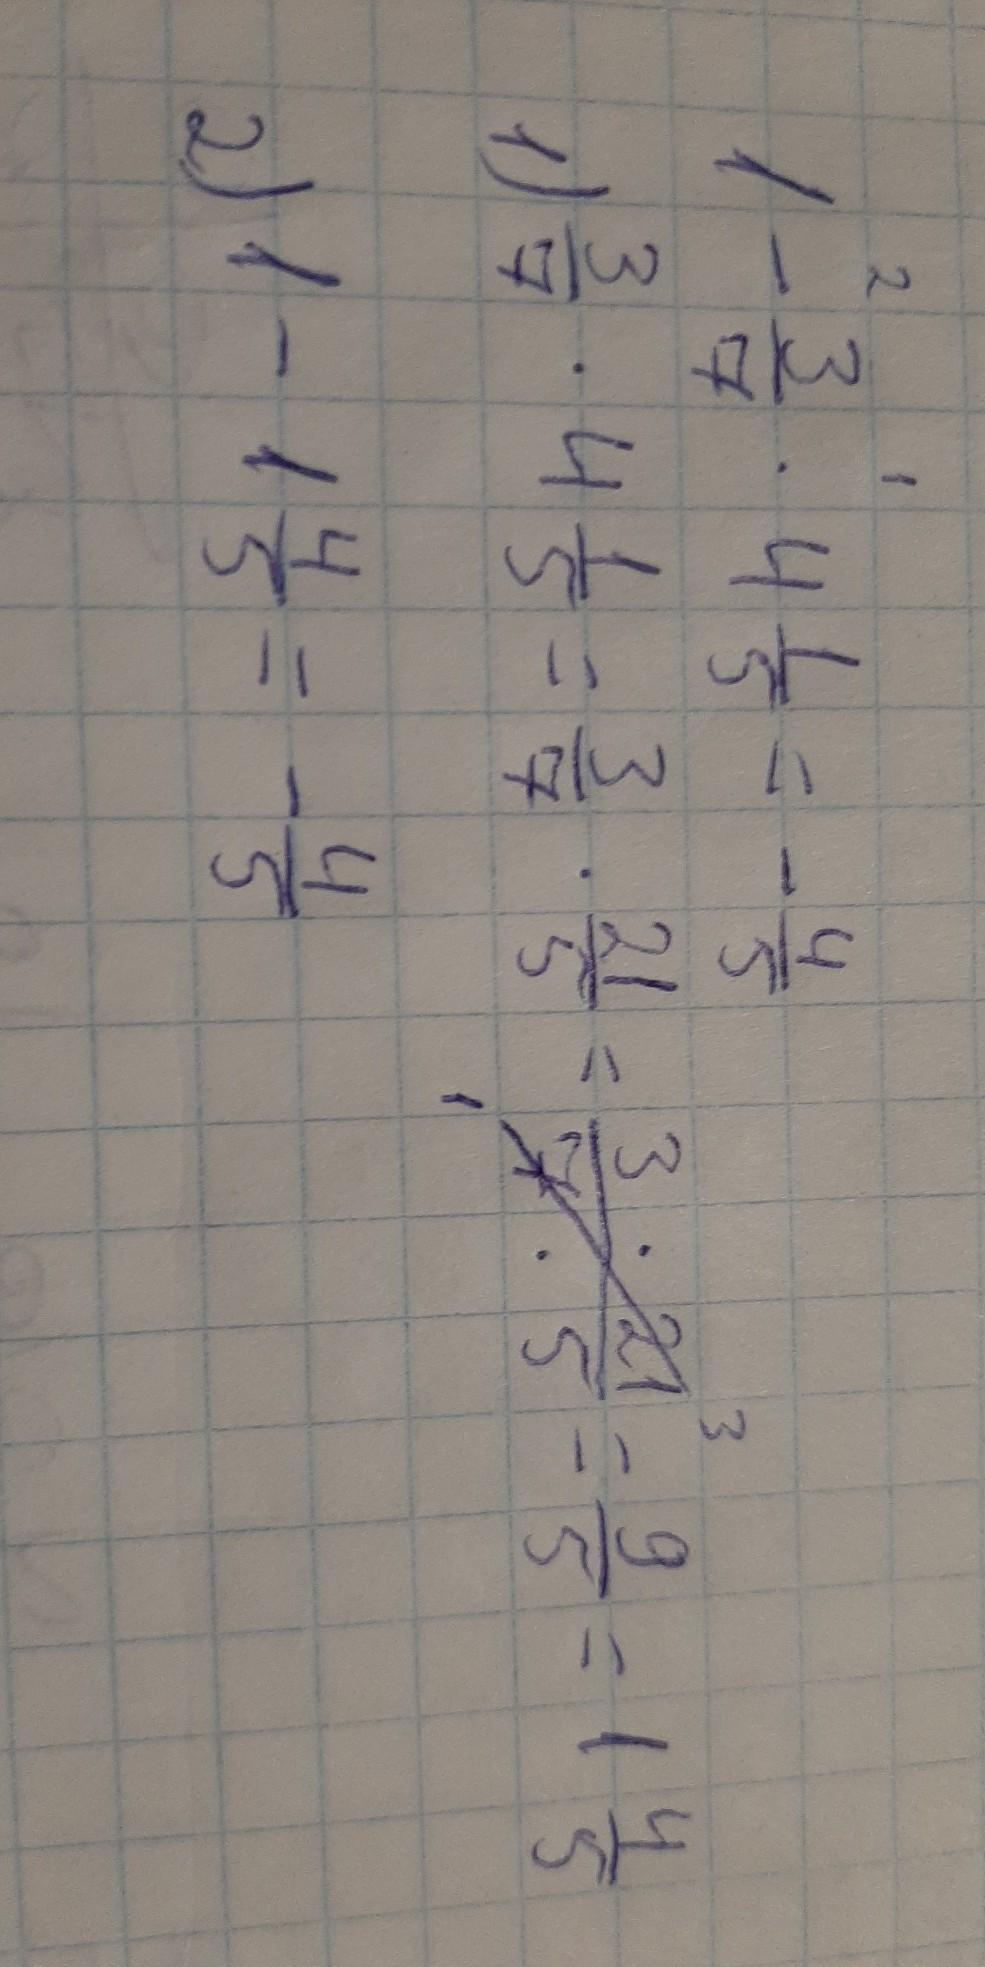 2 1
1 - 3/7 · 4 1/5 = - 4/5
1) 3/7 · 4 1/5 = 3/7 · 21/5 = 3 · 21 3 / 7 1 · 5 = 9/5 = 1 4/5
2) 1 - 1 4/5 = - 4/5